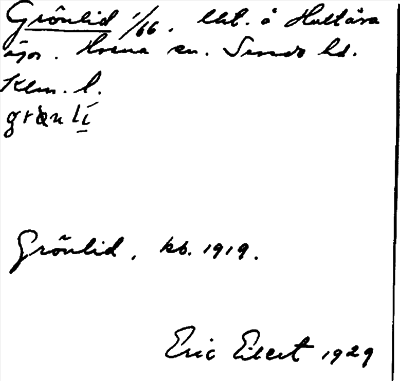 Grönlid 1/66. lht. å Hultåra
ägor. Hvena sn. Sevede hd.
Klm. l.
grænlí
Grönlid, kb. 1919.
Eric Elert 1929